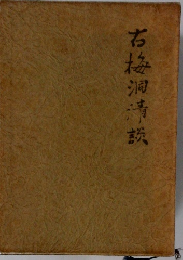 古梅洞清談